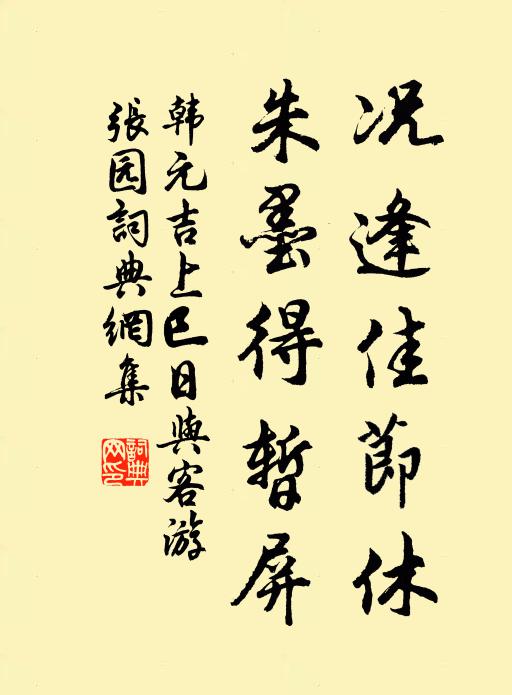 况逢佳節休
朱墨得暫屏
韩元吉上巳日與客游
張园詞典網集
詞典
网印